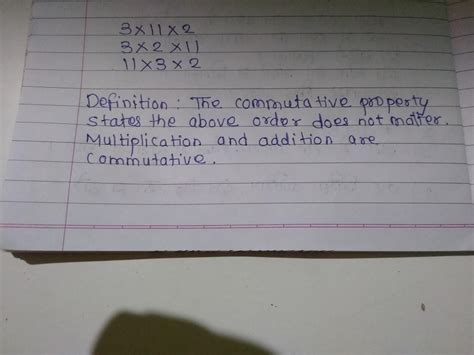 3×11×2
3×2×11
11×3×2
Definition : The commutative property
states the above order does not matter.
Multiplication and addition are
commutative.